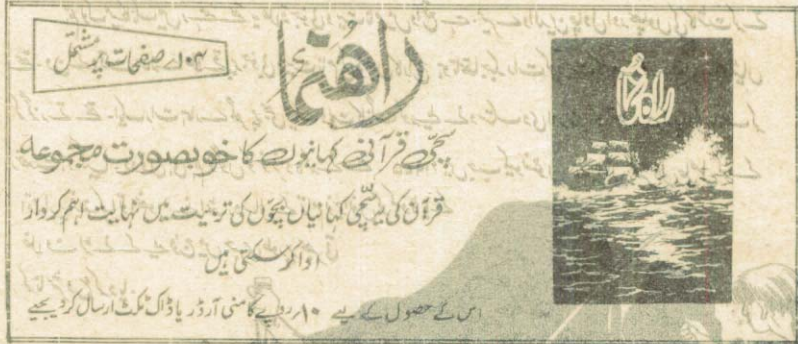 راهنما
۱۰۴ صفحات پر مشتمل
سچی قرآنی کہانیوں کا خوبصورت مجموعہ
قرآن کی یہ سچی کہانیاں بچوں کی تربیت میں نہایت اہم کردار
ادا کر سکتی ہیں
اس کے حصول کے لیے ۱۰ روپے کا منی آرڈر یا ڈاک ٹکٹ ارسال کر دیجیے
راہنما